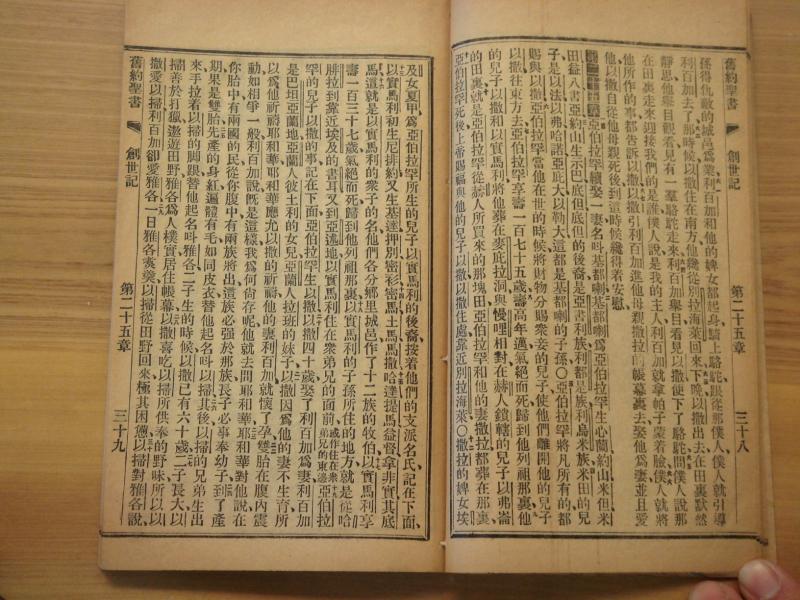 孫得仇敵的城邑爲業利百加和他的婢女都起身騎上駱駝跟從那僕人僕人就引導
利百加去了那時候以撒住在南方他纔從別拉海萊回來下晚以撒出去在田裏默然
靜思他舉目觀看見有一羣駱駝走來利百加舉目看見以撒便下了駱駝問僕人說那
在田裏走來迎接我們的是誰僕人說是我的主人利百加就拿帕子蒙着臉僕人就將
他所作的事都告訴以撒以撒引利百加進他母親撒拉的帳幕裏去娶他爲妻並且愛
他以撒自從他母親死後到這時候纔得着安慰
第二十五章 亞伯拉罕續娶一妻名呌基都喇基都喇爲亞伯拉罕生心蘭約山米但米
田益八書亞約山生示巴底但底但的後裔是亞書利族利都是族利烏米族米田的兒
子是以法以弗哈諾亞庇大以勒大這都是基都喇的子孫○亞伯拉罕將凡所有的都
賜與以撒亞伯拉罕當他在世的時候將財物分賜衆妾的兒子使他們離開他的兒子
以撒往東方去亞伯拉罕享壽一百七十五歲壽高年邁氣絕而死歸到他列祖那裏他
的兒子以撒和以實馬利將他葬在麥庇拉洞與慢哩相對在赫人鎖轄的兒子以弗崙
的田裏就是亞伯拉罕從赫人所買來的那塊田亞伯拉罕和他的妻撒拉都葬在那裏
亞伯拉罕死後上帝賜福與他的兒子以撒以撒住處靠近別拉海萊○撒拉的婢女埃
舊約聖書 創世記 第二十五章 三十八
及女夏甲爲亞伯拉罕所生的兒子以實馬利的後裔按着他們的支派名氏記在下面
以實馬利初生尼排約又生基達押別密衫密蕭土馬馬撒哈達提馬益督拿非實其底
馬這就是以實馬利的衆子的名他們各分鄉里城邑作了十二族的牧伯以實馬利享
壽一百三十七歲氣絕而死歸到他列祖那裏以實馬利的子孫所住的地方就是從哈
腓拉到靠近埃及的書耳又到亞遜地以實馬利住在衆弟兄的面前 或作住在衆弟兄的東邊 亞伯拉
罕的兒子以撒的事記在下面亞伯拉罕生以撒以撒四十歲娶了利百加爲妻利百加
是巴坦亞蘭地亞蘭人彼土利的女兒亞蘭人拉班的妹子以撒因爲他的妻不生育所
以爲他祈禱耶和華耶和華應允以撒的祈禱他的妻利百加就懷了孕雙胎在腹內震
動如相爭一般利百加說旣是這樣我爲何尙存呢他就去問耶和華耶和華對他說在
你胎中有兩國的民從你腹中有兩族將出這族必強於那族長子必事奉幼子到了產
期果是雙胎先產的身紅遍體有毛如同皮衣替他起名呌以掃其後以掃的兄弟生出
來手拉着以掃的脚跟替他起名呌雅各二子生的時候以撒已有六十歲二子長大以
掃善於打獵遨遊田野雅各爲人樸實居住帳幕以撒喜吃以掃所供奉的野味所以以
撒愛以掃利百加卻愛雅各一日雅各煑羹以掃從田野回來極其困憊以掃對雅各說
舊約聖書 創世記 第二十五章 三十九